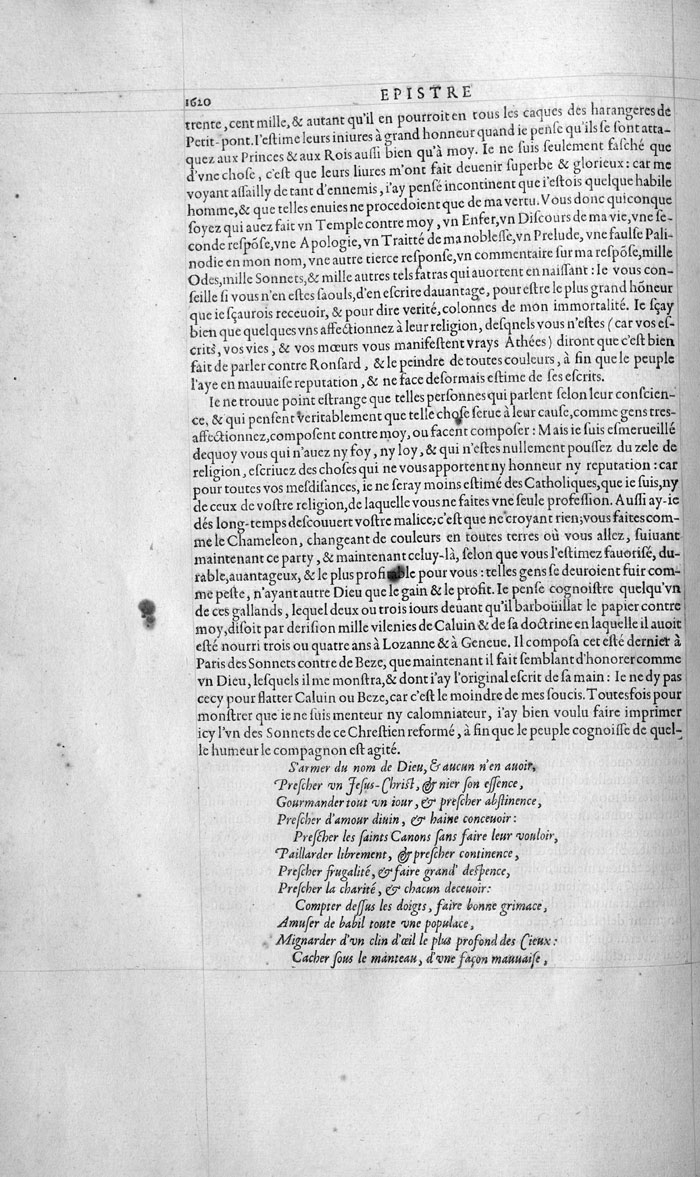 1620
EPISTRE
trente, cent mille, & autant qu'il en pourroit en tous les caques des harangeres de
Petit-pont. I'estime leurs iniures à grand honneur quand ie pense qu'ils se sont atta-
quez aux Princes & aux Rois aussi bien qu'à moy. Ie ne suis seulement fasché que
d'vne chose, c'est que leurs liures m'ont fait deuenir superbe & glorieux: car me
voyant assailly de tant d'ennemis, i'ay pensé incontinent que i'estois quelque habile
homme, & que telles enuies ne procedoient que de ma vertu. Vous donc quiconque
soyez qui auez fait vn Temple contre moy, vn Enfer, vn Discours de ma vie, vne se-
conde respõse, vne Apologie, vn Traitté de ma noblesse, vn Prelude, vne faulse Pali-
nodie en mon nom, vne autre tierce response, vn commentaire sur ma respõse, mille
Odes, mille Sonnets, & mille autres tels fatras qui auortent en naissant: Ie vous con-
seille si vous n'en estes saouls, d'en escrire dauantage, pour estre le plus grand hõneur
que ie sçaurois receuoir, & pour dire verité, colonnes de mon immortalité. Ie sçay
bien que quelques vns affectionnez à leur religion, desquels vous n'estes (car vos es-
crits, vos vies, & vos mœurs vous manifestent vrays Athées) diront que c'est bien
fait de parler contre Ronsard, & le peindre de toutes couleurs, à fin que le peuple
l'aye en mauuaise reputation, & ne face desormais estime de ses escrits.
Ie ne trouue point estrange que telles personnes qui parlent selon leur conscien-
ce, & qui pensent veritablement que telle chose serue à leur cause, comme gens tres-
affectionnez, composent contre moy, ou facent composer: Mais ie suis esmerueillé
dequoy vous qui n'auez ny foy, ny loy, & qui n'estes nullement poussez du zele de
religion, escriuez des choses qui ne vous apportent ny honneur ny reputation: car
pour toutes vos mesdisances, ie ne seray moins estimé des Catholiques, que ie suis, ny
de ceux de vostre religion, de laquelle vous ne faites vne seule profession. Aussi ay-ie
dés long-temps descouuert vostre malice; c'est que ne croyant rien; vous faites com-
me le Chameleon, changeant de couleurs en toutes terres où vous allez, suiuant
maintenant ce party, & maintenant celuy-là, selon que vous l'estimez fauorisé, du-
rable, auantageux, & le plus profitable pour vous: telles gens se deuroient fuir com-
me peste, n'ayant autre Dieu que le gain & le profit. Ie pense cognoistre quelqu'vn
de ces gallands, lequel deux ou trois iours deuant qu'il barbouïllat le papier contre
moy, disoit par derision mille vilenies de Caluin & de sa doctrine en laquelle il auoit
esté nourri trois ou quatre ans à Lozanne & à Geneue. Il composa cet esté dernier à
Paris des Sonnets contre de Beze, que maintenant il fait semblant d'honorer comme
vn Dieu, lesquels il me monstra, & dont i'ay l'original escrit de sa main: Ie ne dy pas
cecy pour flatter Caluin ou Beze, car c'est le moindre de mes soucis. Toutesfois pour
monstrer que ie ne suis menteur ny calomniateur, i'ay bien voulu faire imprimer
icy l'vn des Sonnets de ce Chrestien reformé, à fin que le peuple cognoisse de quel-
le humeur le compagnon est agité.
S'armer du nom de Dieu, & aucun n'en auoir,
Prescher vn Jesus-Christ, & nier son essence,
Gourmander tout vn iour, & prescher abstinence,
Prescher d'amour diuin, & haine conceuoir:
Prescher les saints Canons sans faire leur vouloir,
Paillarder librement, & prescher continence,
Prescher frugalité, & faire grand' despence,
Prescher la charité, & chacun deceuoir:
Compter dessus les doigts, faire bonne grimace,
Amuser de babil toute vne populace,
Mignarder d'vn clin d'œil le plus profond des Cieux:
Cacher sous le manteau, d'vne façon mauuaise,